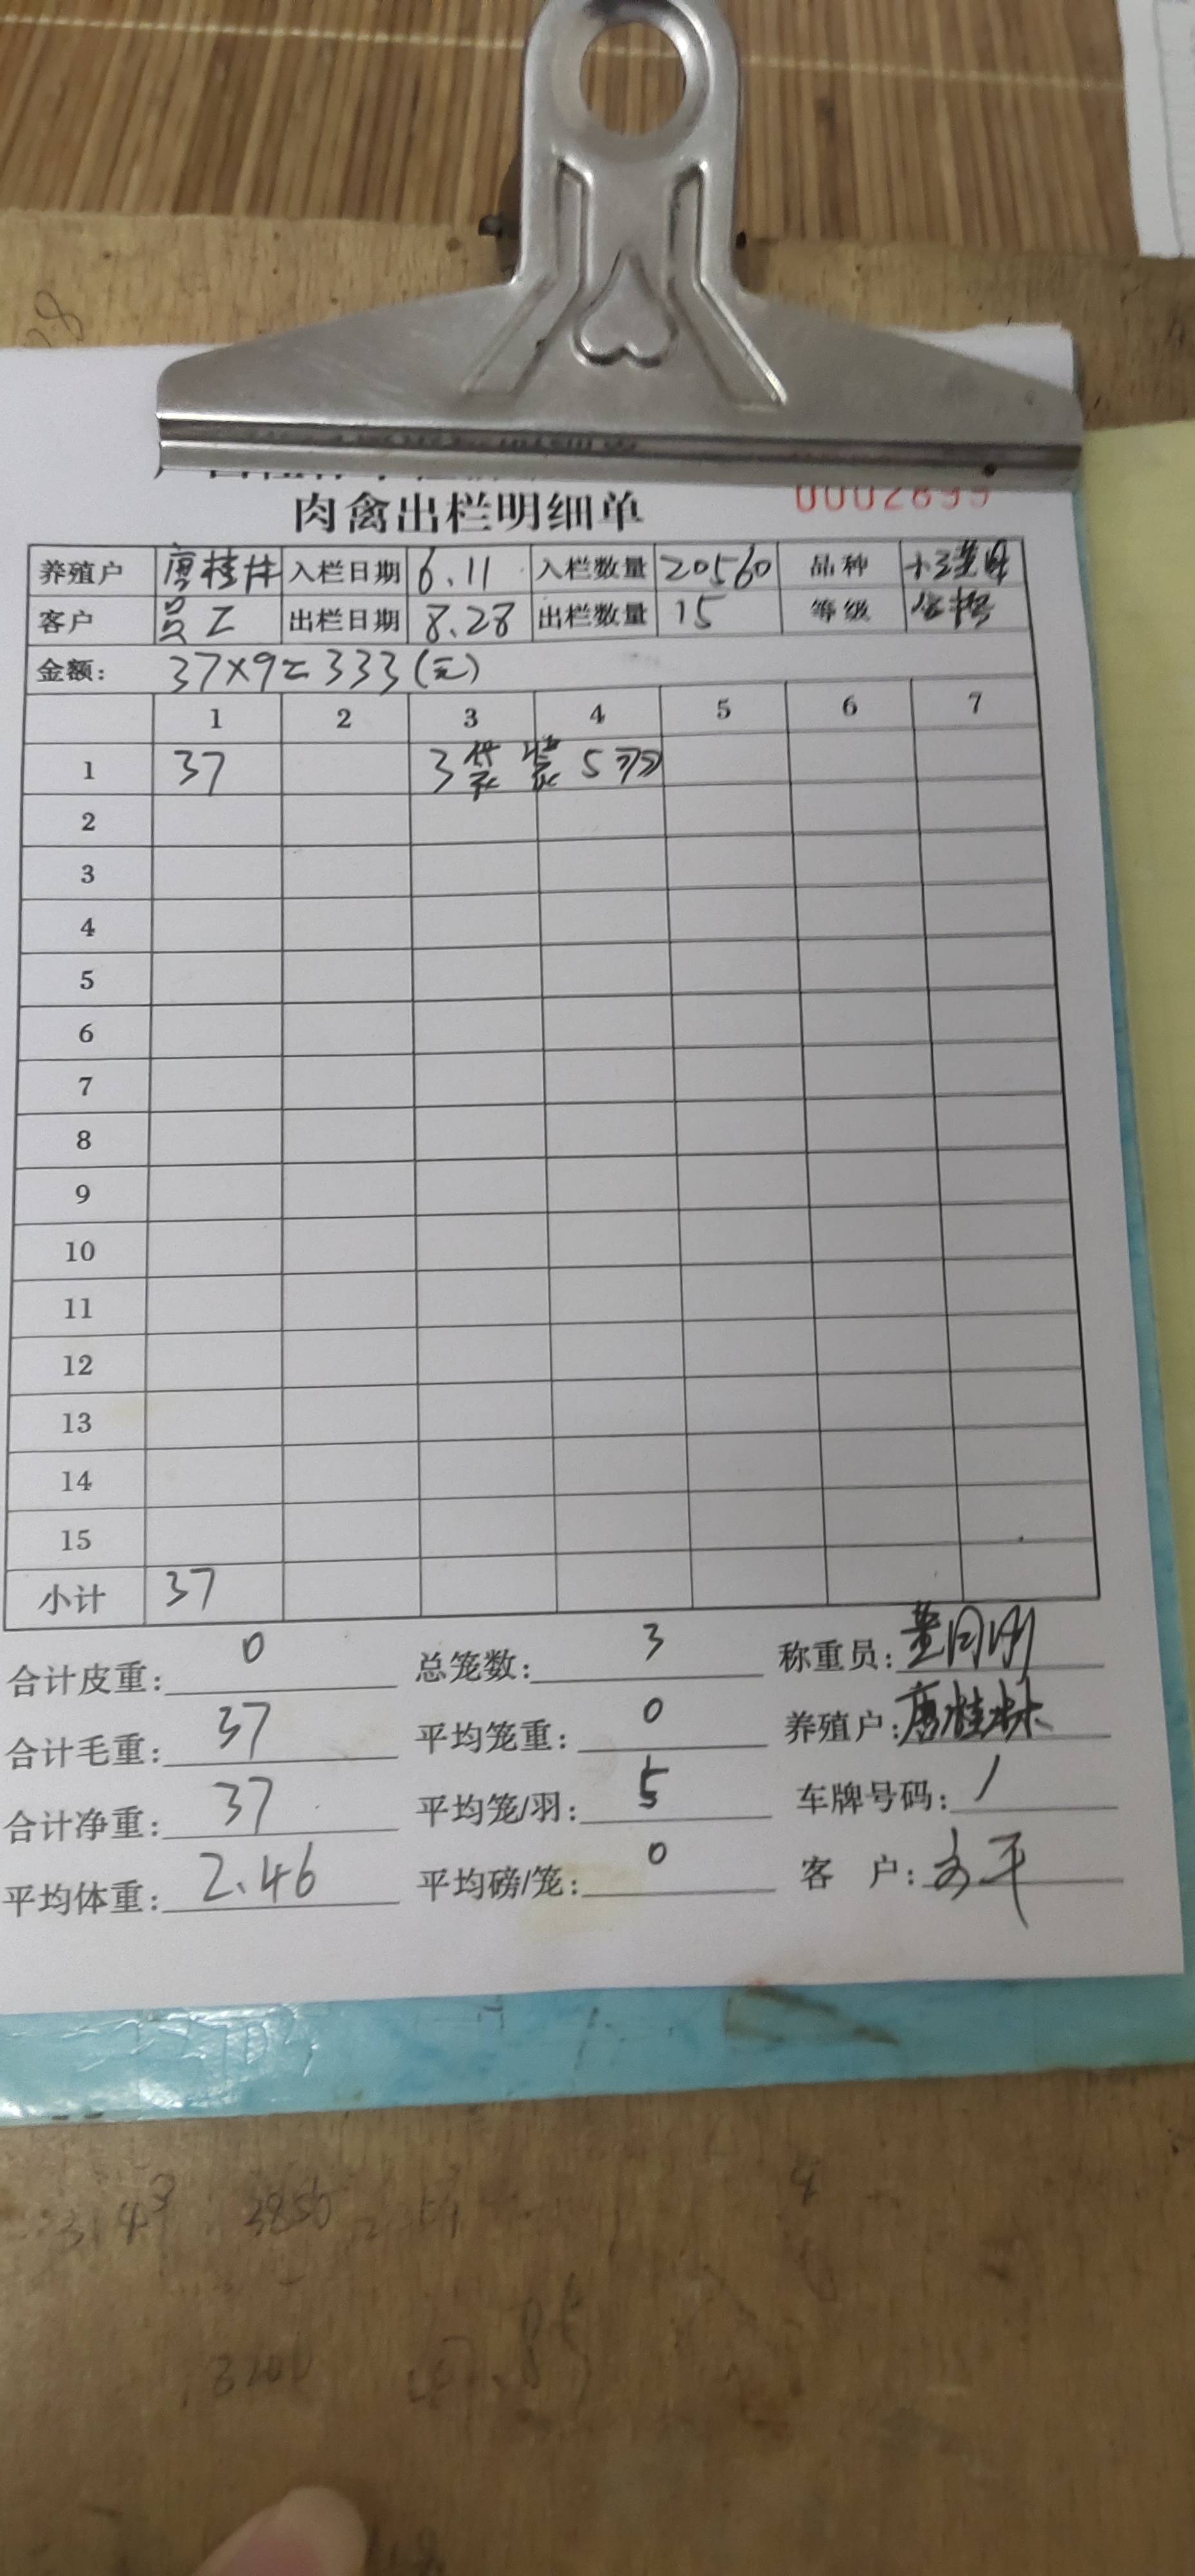 肉禽出栏明细单 0002899
养殖户 唐桂林 入栏日期 6.11 入栏数量 20560 品种
客户 员工 出栏日期 8.28 出栏数量 15 等级
金额: 37×9=333(元)
1 2 3 4 5 6 7
1 37 3袋 装 5羽
2
3
4
5
6
7
8
9
10
11
12
13
14
15
小计 37
合计皮重: 0 总笼数: 3 称重员:
合计毛重: 37 平均笼重: 0 养殖户: 唐桂林
合计净重: 37 平均笼/羽: 5 车牌号码: /
平均体重: 2.46 平均磅/笼: 0 客 户: